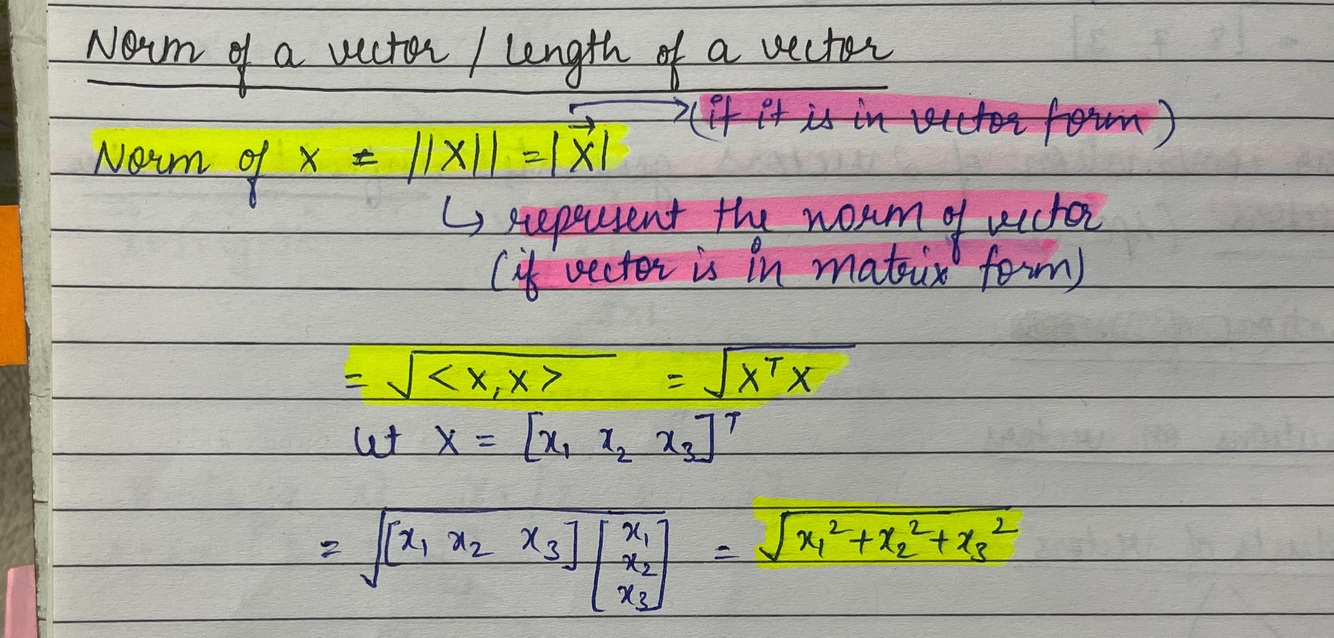 Norm of a vector / length of a vector
(if it is in vector form)
Norm of x = ||X|| = |x⃗|
↳ represent the norm of vector
(if vector is in matrix form)
= √<x,x> = √XᵀX
let X = [x₁ x₂ x₃]ᵀ
= √[x₁ x₂ x₃] [x₁ x₂ x₃] = √x₁²+x₂²+x₃²